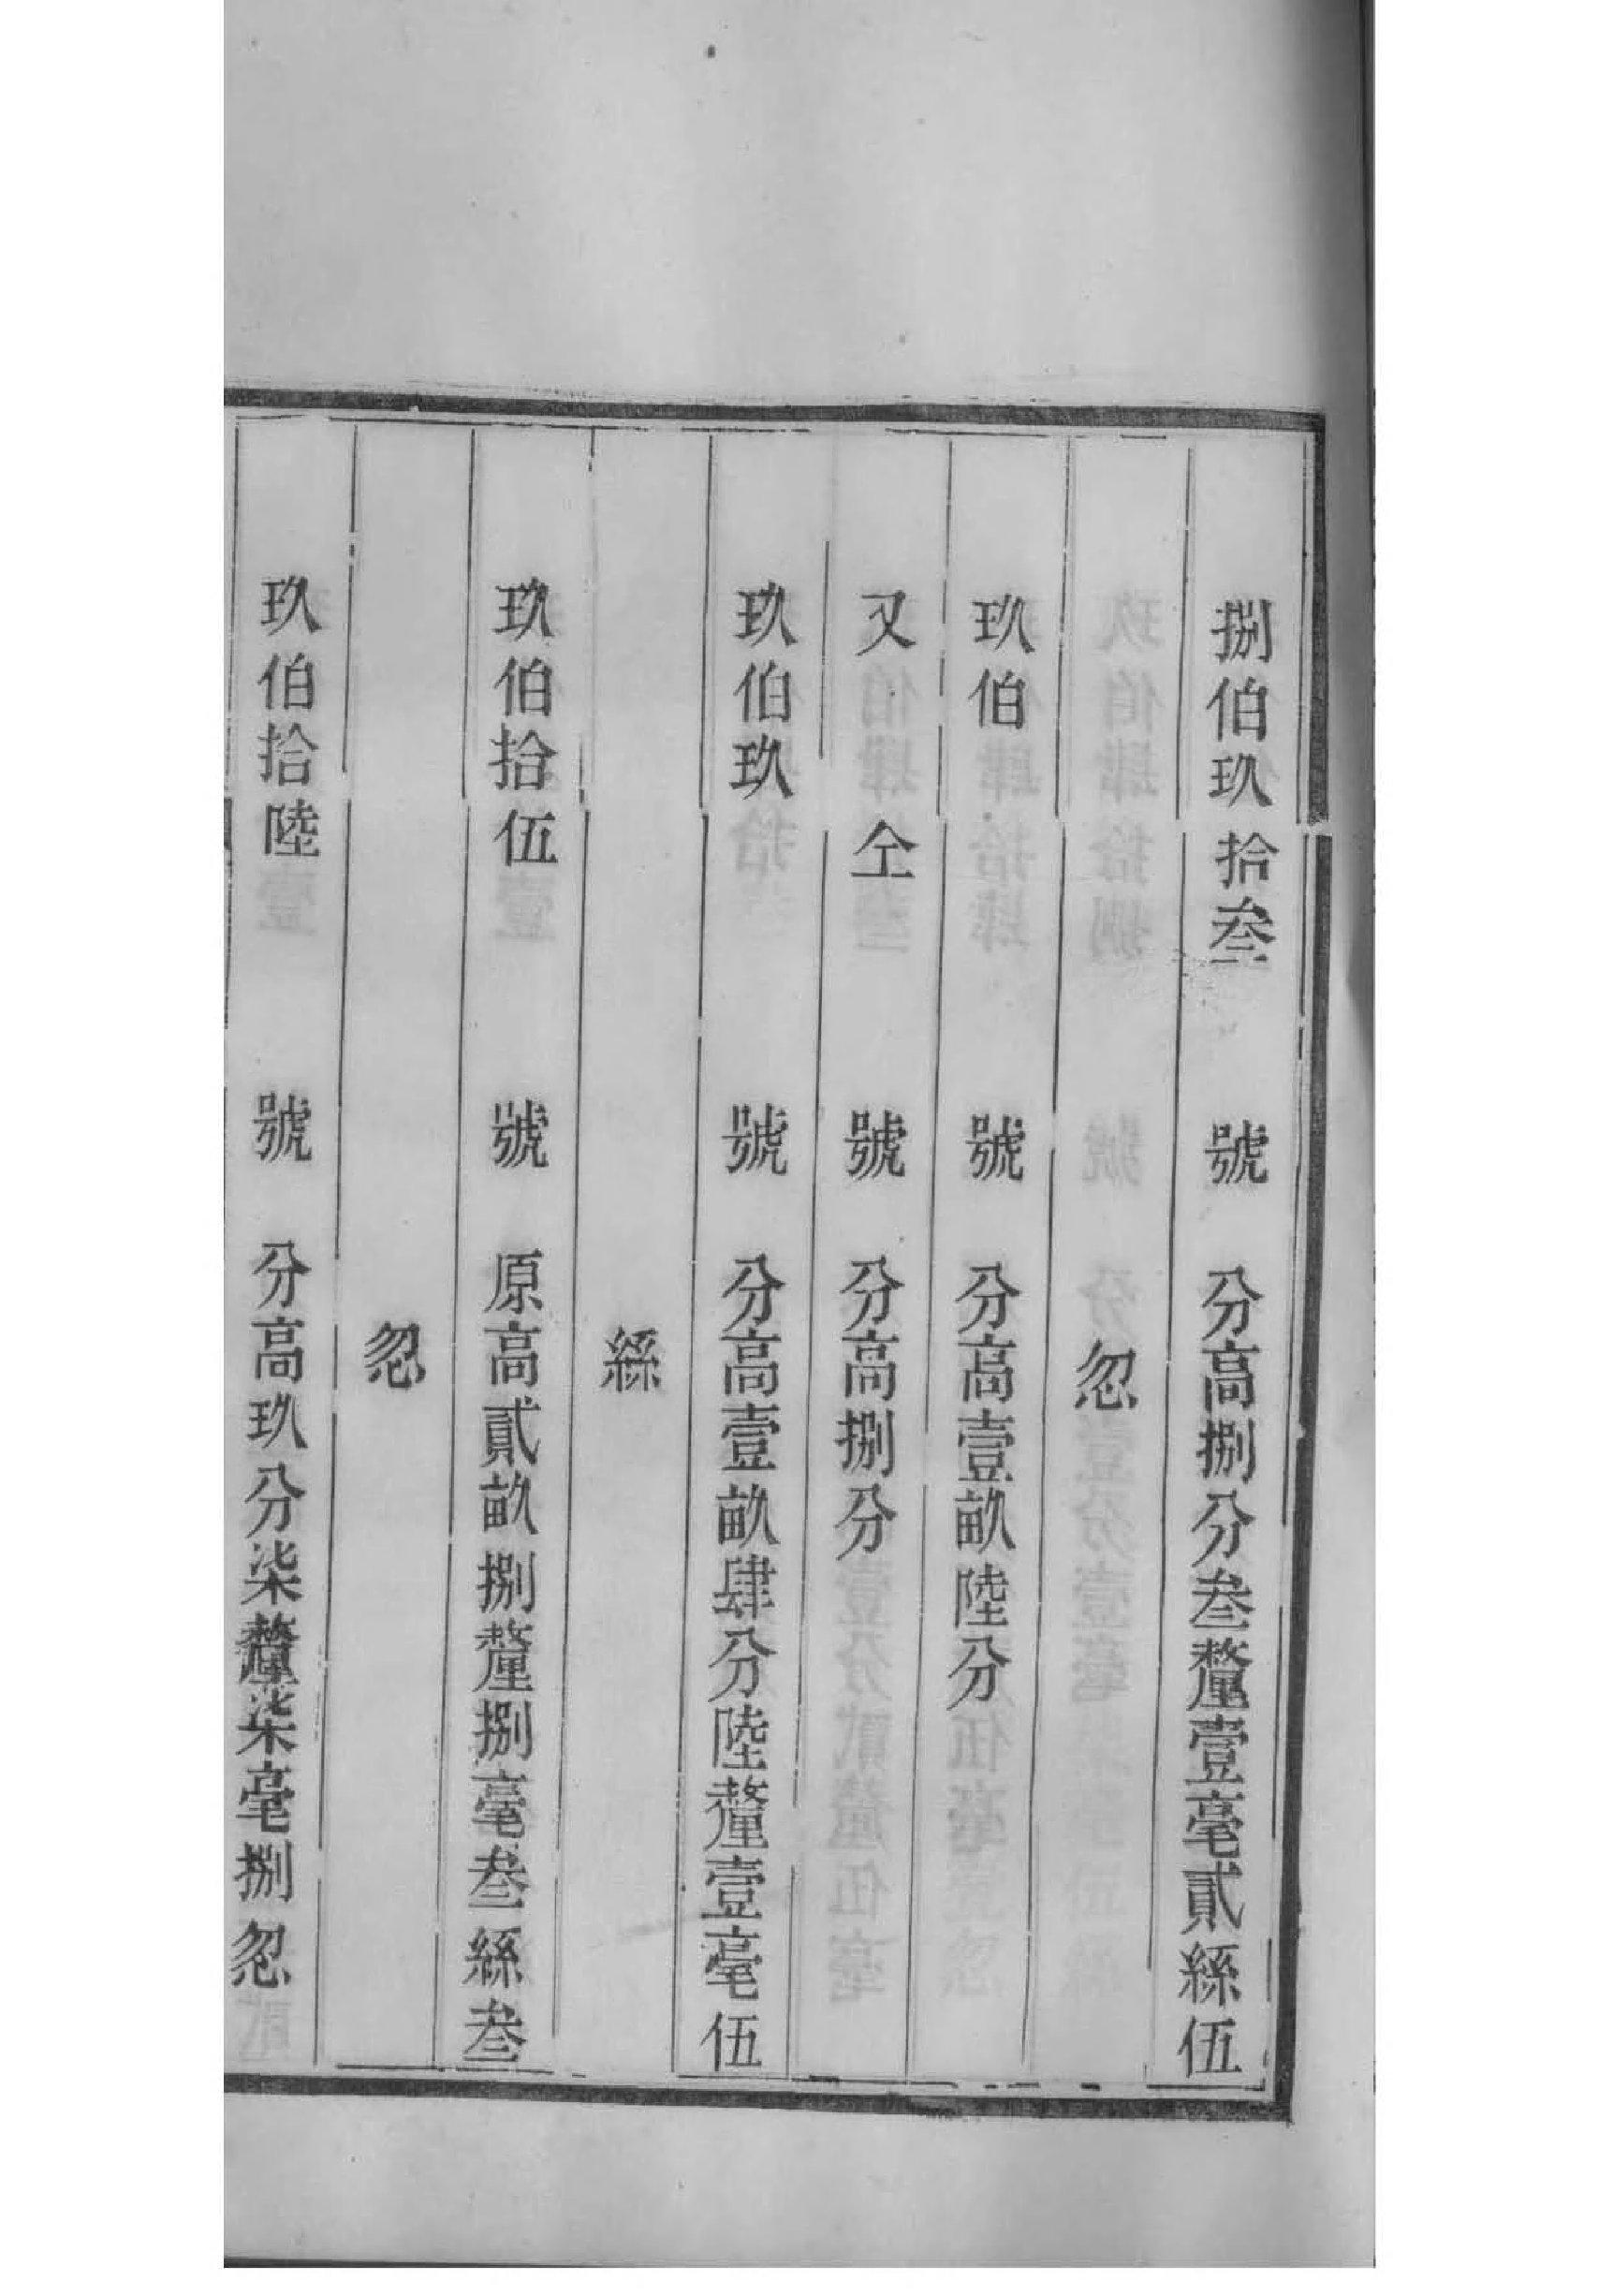 捌伯玖拾叁 號 分高捌分叁釐壹毫貳絲伍
忽
玖伯 號 分高壹畝陸分
又仝 號 分高捌分
玖伯玖 號 分高壹畝肆分陸釐壹毫伍
絲
玖伯拾伍 號 原高貳畝捌釐捌毫叁絲叁
忽
玖伯拾陸 號 分高玖分柒釐柒毫捌忽